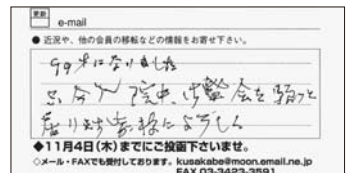 更新
e-mail
● 近況や、他の会員の移転などの情報をお寄せ下さい。
99才になりました
只今入院中、
居ります 皆様によろしく
◆11月4日(木)までにご投函下さいませ。
◇メール・FAXでも受付しております。kusakabe@moon.email.ne.jp
FAX 03-3423-3591